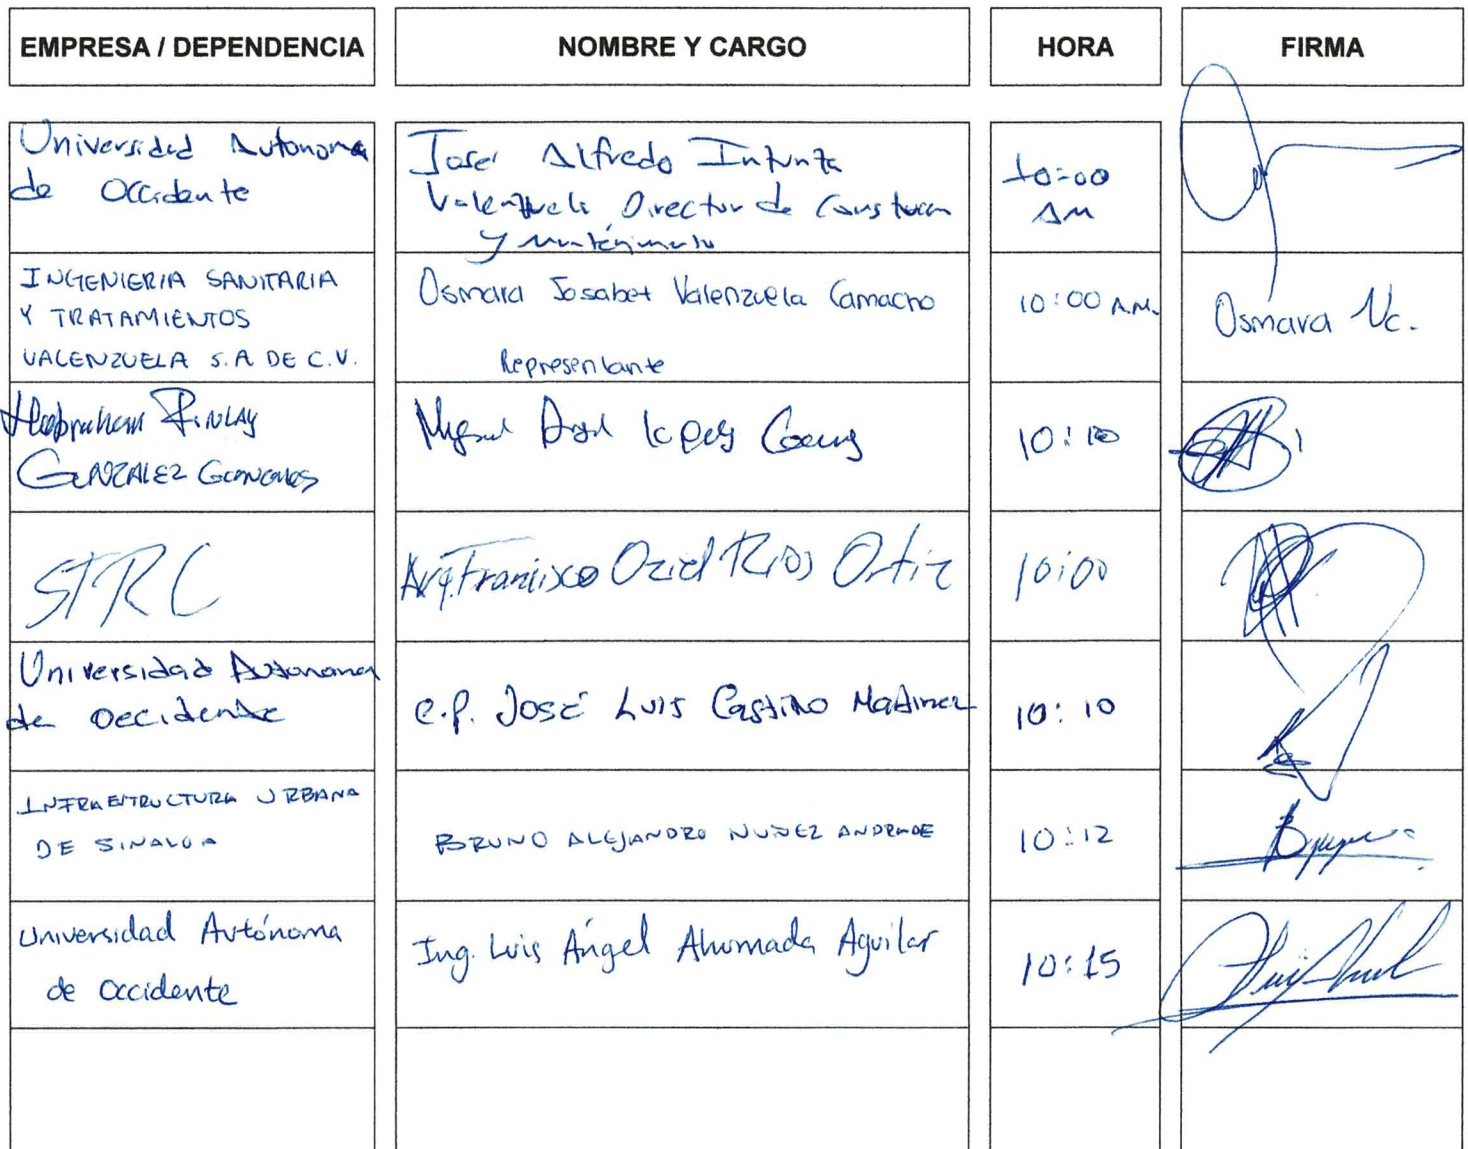 EMPRESA / DEPENDENCIA NOMBRE Y CARGO HORA FIRMA
Universidad Autonoma
de Occidente
José Alfredo Inzunza
Valenzuela Director de
y
10:00
AM
INGENIERIA SANITARIA
Y TRATAMIENTOS
VALENZUELA S.A DE C.V.
Osmara Josabet Valenzuela Camacho
Representante
10:00 A.M.
Osmara Vc.
FINLAY
GONZALEZ
Miguel Angel
10:10
STRC
Arq. Francisco Oziel Rios Ortiz
10:00
Universidad Autonoma
de Occidente
C.P. José Luis Castillo Martinez
10:10
INFRAESTRUCTURA URBANA
DE SINALOA
BRUNO ALEJANDRO NUÑEZ ANDRADE
10:12
Universidad Autónoma
de Occidente
Ing. Luis Ángel Ahumada Aguilar
10:15